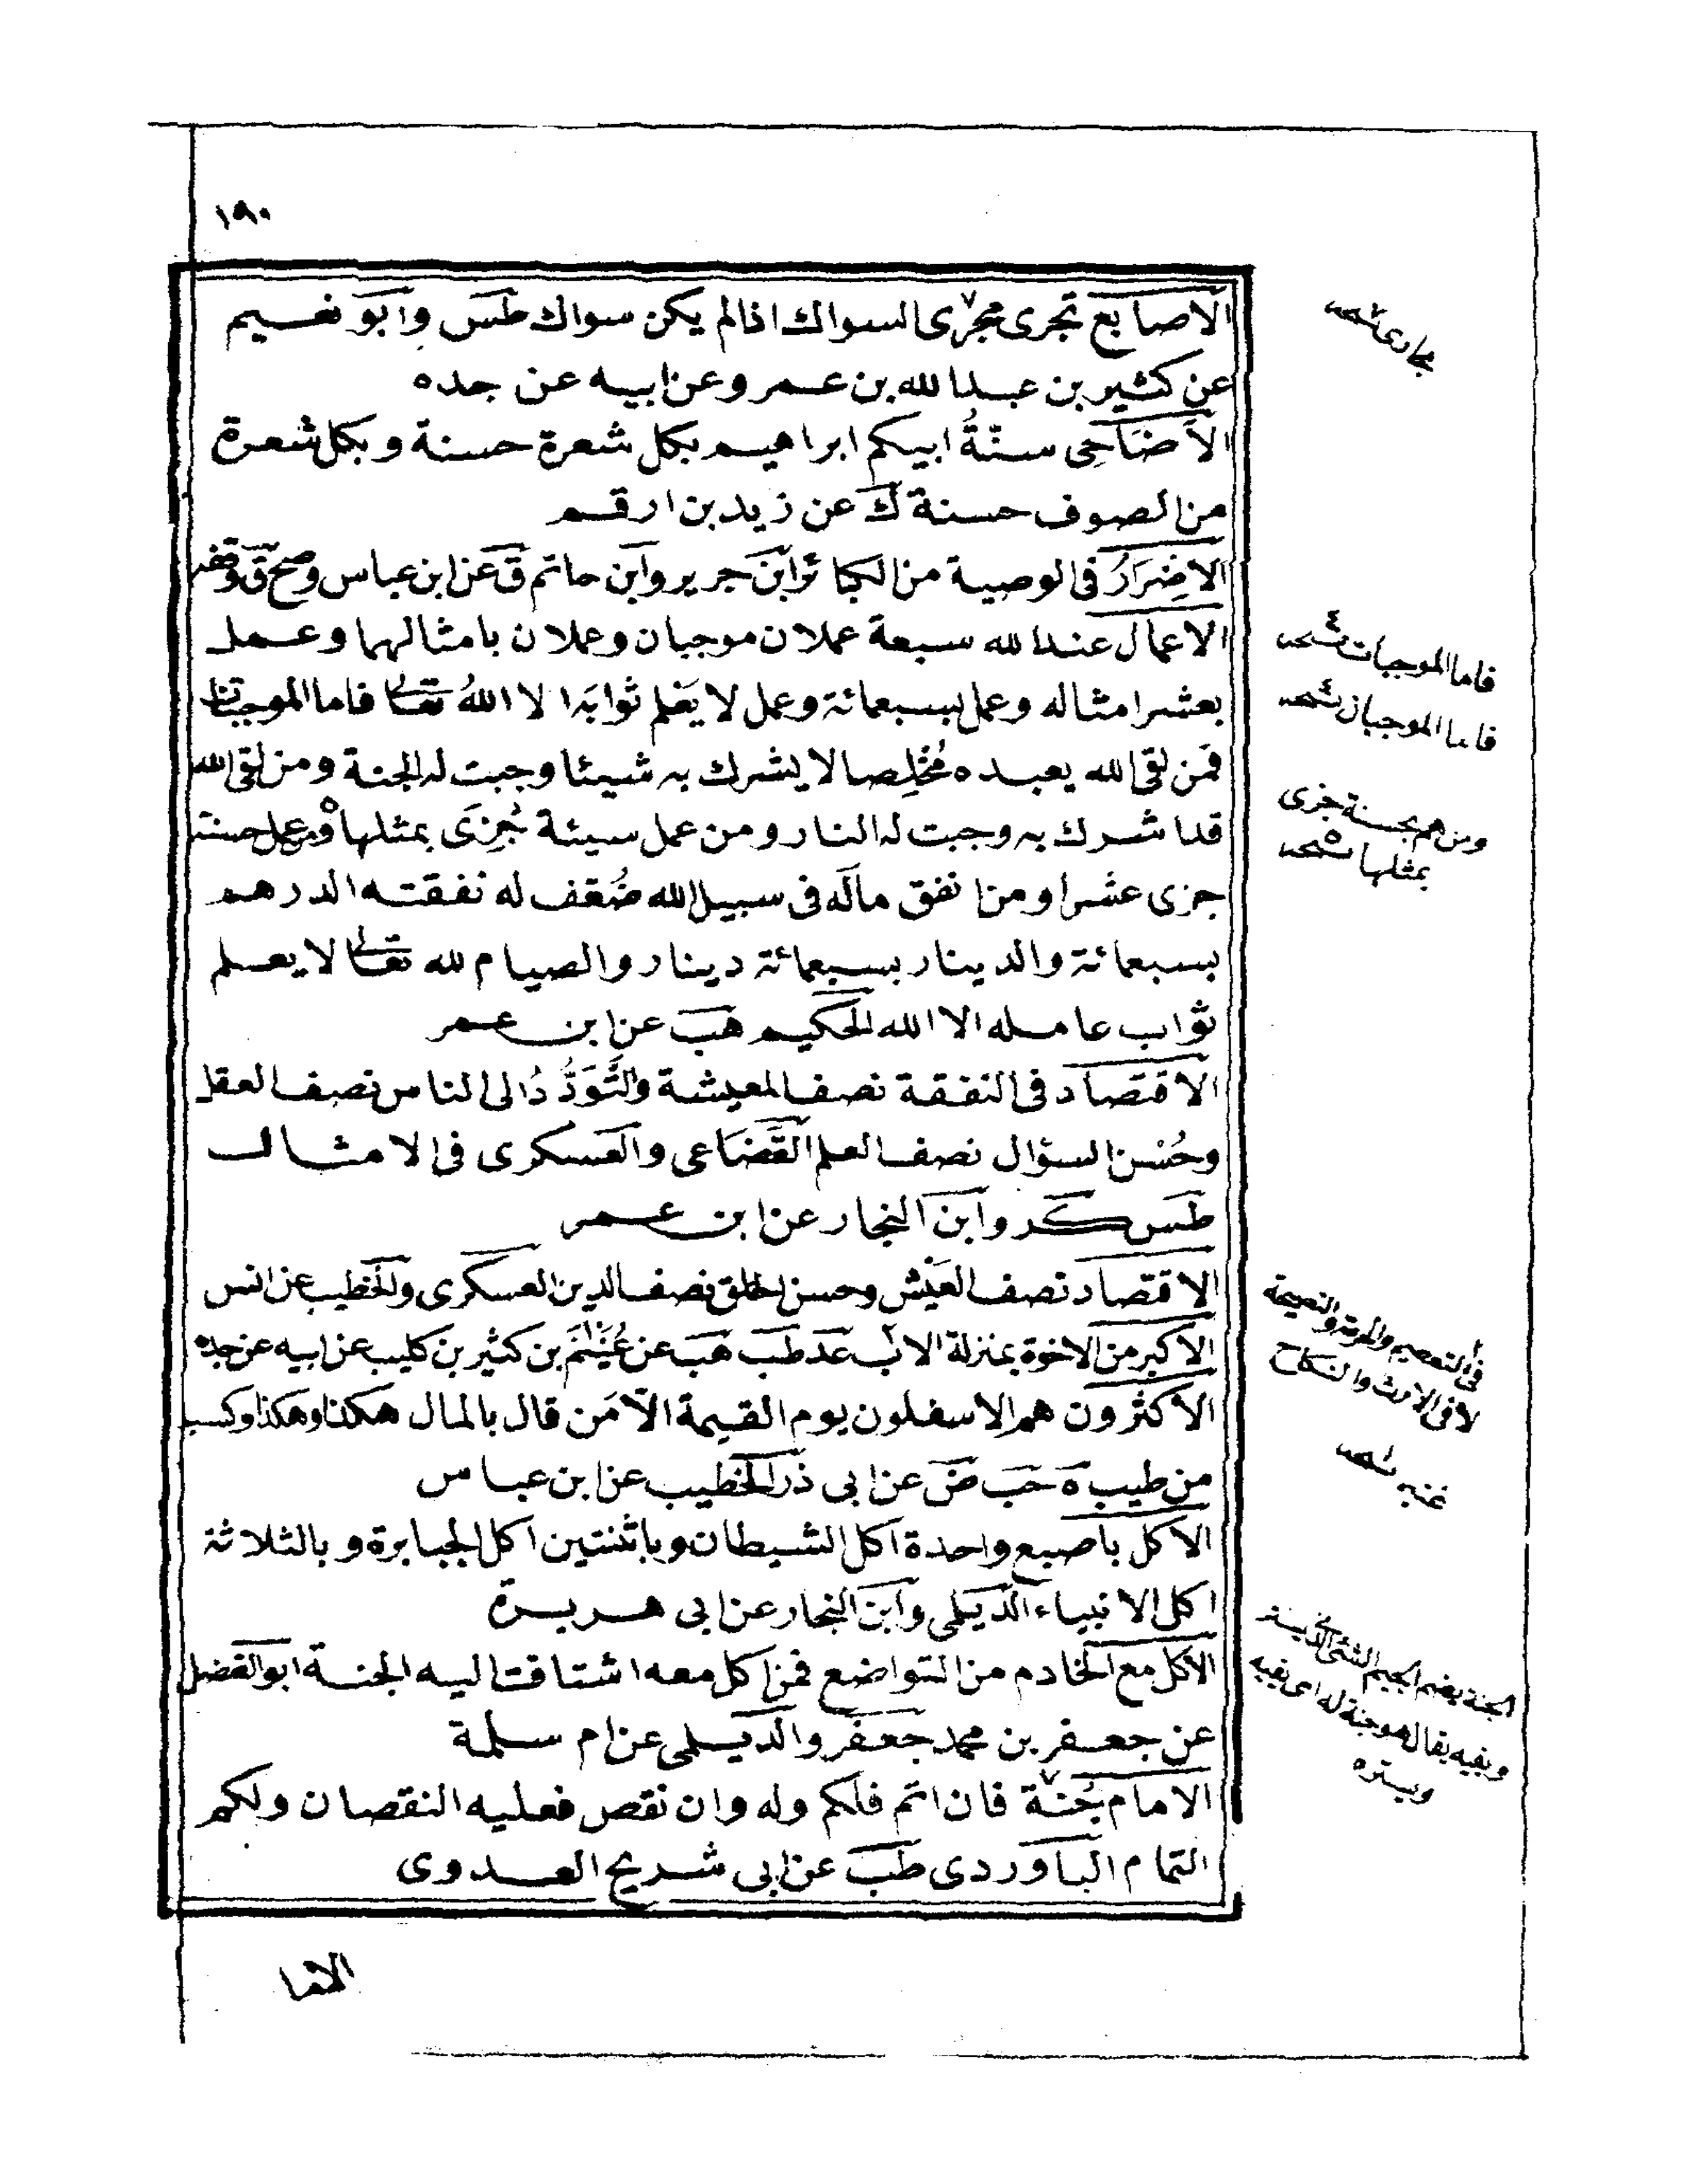 ١٩٠
الاصابع تجرى مجرى السواك اذا لم يكن سواك طس وابو نعيم
عن كثير بن عبد الله بن عمرو عن ابيه عن جده
الأضَاحِى سنّةُ ابيكم ابراهيم بكل شعرة حسنة وبكل شعرة
من الصوف حسنة ك عن زيد بن ارقم
الاضِرَارُ فى الوصية من الكبائر ابن جرير وابن حاتم ق عن ابن عباس وصح ق وقفه
الاعمال عند الله سبعة عملان موجبان وعملان بامثالهما وعمل
بعشر امثاله وعمل بسبعمائة وعمل لا يَعْلم ثوابَه الا اللهُ تعالى فاما الموجبتان
فمن لقى الله يعبده مُخْلِصا لا يشرك به شيئا وجبت له الجنة ومن لقى الله
قد اشرك به وجبت له النار ومن عمل سيئة جُزِىَ بمثلها ومن عمل حسنة
جزى عشرا ومن انفق ماله فى سبيل الله ضُعّف له نفقته الدرهم
بسبعمائة والدينار بسبعمائة دينار والصيام لله تعالى لا يعلم
ثواب عامله الا الله الحكيم هب عن ابن عمر
الاقتصاد فى النفقة نصف المعيشة والتَّوَدُّدُ الى الناس نصف العقل
وحُسْن السؤال نصف العلم القُضَاعى والعسكرى فى الامثال
طس كر وابن النجار عن ابن عمر
الاقتصاد نصف العَيْش وحسن الخلق نصف الدين العسكرى والخطيب عن انس
الاكبر من الاخوة بمنزلة الاب عد طب هب عن غُنَيْم بن كثير بن كليب عن ابيه عن جده
الاكثرون هم الاسفلون يوم القيمة الّا مَن قال بالمال هكذا وهكذا وكسبه
من طيب ه حب ض عن ابى ذر الخطيب عن ابن عباس
الاكل باصبع واحدة اكل الشيطان وباثنتين اكل الجبابرة وبالثلاثة
اكل الانبياء الديلمى وابن النجار عن ابى هريرة
الاكل مع الخادم من التواضع فمن اكل معه اشتاقت اليه الجنة ابو الفضل
عن جعفر بن محمد جعفر والديلمى عن ام سلمة
الامام جُنّة فان اتم فلكم وله وان نقص فعليه النقصان ولكم
التمام الباوردى طب عن ابى شريح العدوى
مجارى نسخه
فاما الموجبات نسخه
فاما الموجبان نسخه
ومن هم بحسنة جزى
بمثلها نسخه
فى التعصيم والحرمة والنصيحة
لا فى الارث والنكاح
الجنة بضم الجيم الشئ الذى يستر
ويقيه يقال هو جنة له اى يقيه
ويستره